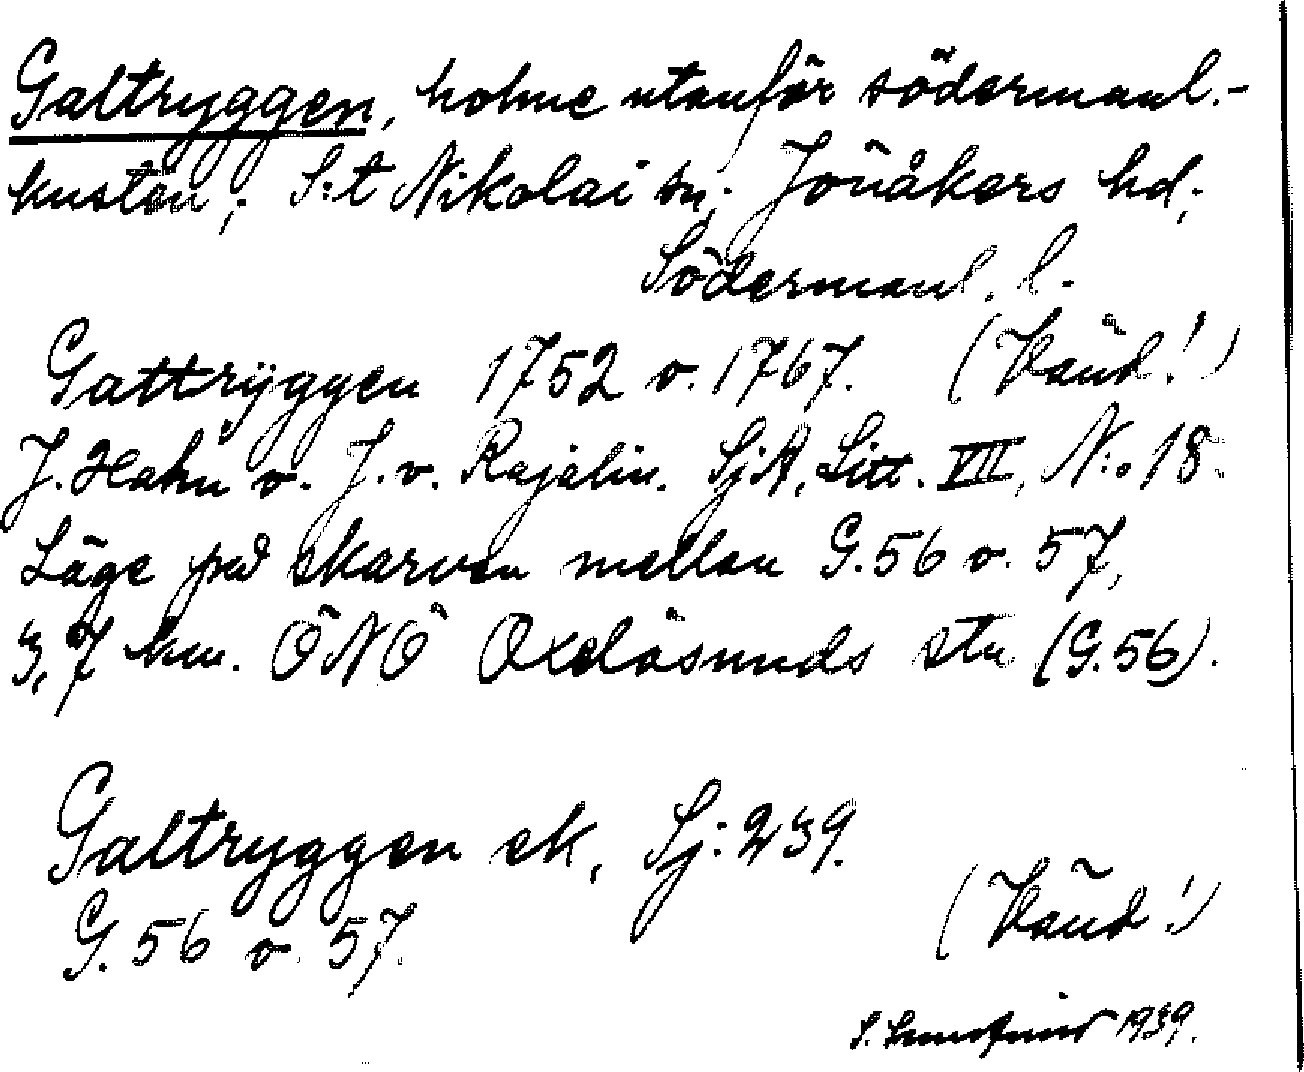 Galtryggen, holme utanför södermanl.-
kusten; S:t Nikolai sn; Jönåkers hd;
Södermanl. l.
Gattryggen 1752 o. 1767. (Vänd!)
J. Hahn o. J. v. Rajalin. SjA, Litt. VII, N:o 18.
Läge på skarven mellan G. 56 o. 57,
3,7 km. ÖNÖ Oxelösunds stn (G. 56).
Galtryggen ek, Sj: 239.
G. 56 o. 57.
(Vänd!)
S. 1939.